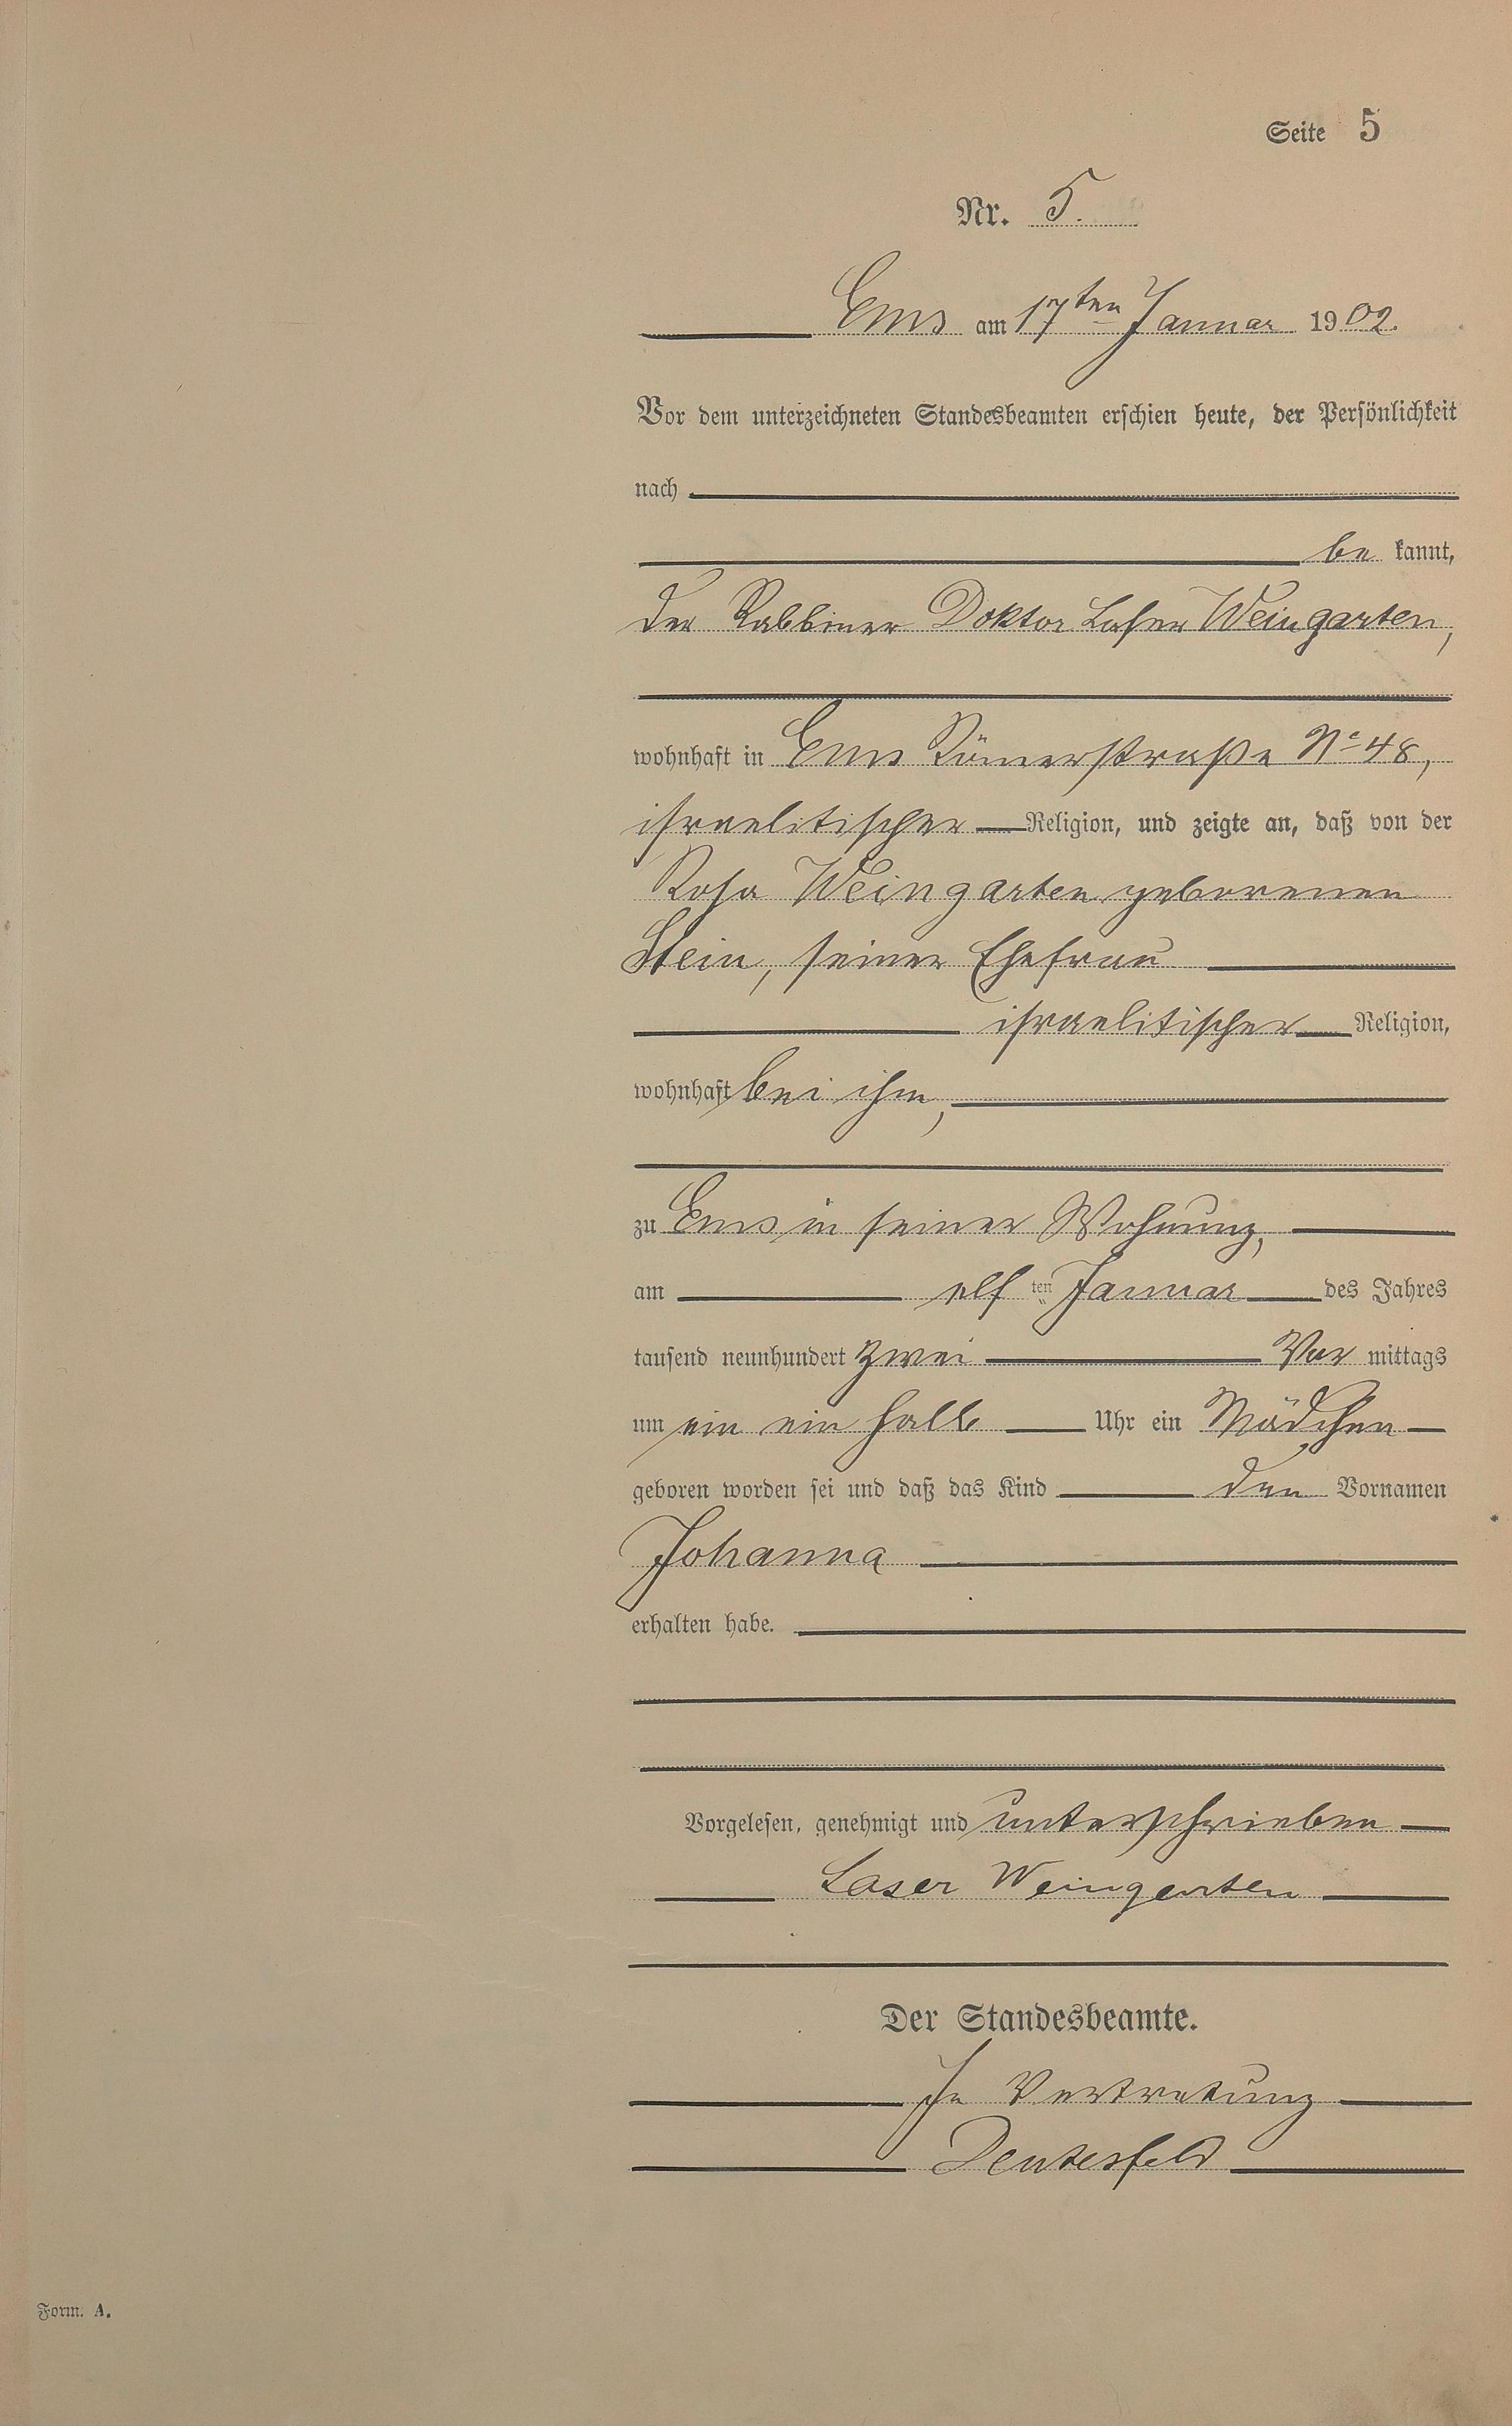 Seite 5
Nr. 5.
Ems am 17ten Januar 1902.
Vor dem unterzeichneten Standesbeamten erschien heute, der Persönlichkeit
nach
be kannt,
der Rabbiner Doktor Laser Weingarten,
wohnhaft in Ems Römerstraße No 48,
israelitischer Religion, und zeigte an, daß von der
Rosa Weingarten geborenen
Stein, seiner Ehefrau
israelitischer Religion,
wohnhaft bei ihm,
zu Ems in seiner Wohnung,
am elf ten Januar des Jahres
tausend neunhundert zwei Vor mittags
um ein ein halb Uhr ein Mädchen
geboren worden sei und daß das Kind den Vornamen
Johanna
erhalten habe.
Vorgelesen, genehmigt und unterschrieben
Laser Weingarten
Der Standesbeamte.
In Vertretung
Form. A.